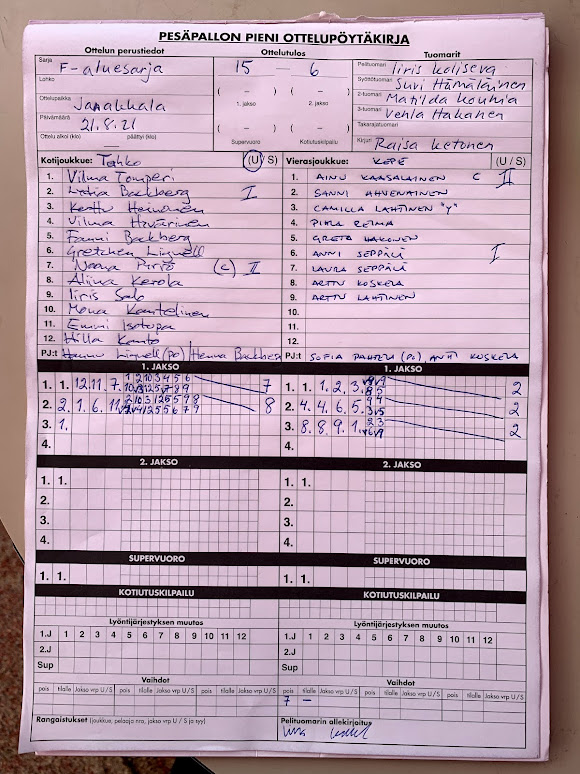 PESÄPALLON PIENI OTTELUPÖYTÄKIRJA
Ottelun perustiedot Ottelutulos Tuomarit
Sarja F-aluesarja 15 — 6 Pelituomari Iiris
Lohko Syöttötuomari Suvi Hämäläinen
Ottelupaikka Janakkala ( – ) ( – ) 2-tuomari Matilda
1. jakso 2. jakso
Päivämäärä 21.8.21 ( – ) ( – ) 3-tuomari Venla Hakanen
Takarajatuomari
Ottelu alkoi (klo) päättyi (klo) Supervuoro Kotiutuskilpailu Kirjuri Raisa Ketonen
Kotijoukkue: Tahko (U / S) Vierasjoukkue: KEPE (U / S)
1. Vilma Tomperi 1. AINU KAASALAINEN C II
2. Backberg I 2. SANNI AHVENAINEN
3. Kerttu Heinonen 3. CAMILLA LAHTINEN "Y"
4. Vilma 4. PIHLA REIMA
5. Fanni Backberg 5. GRETA HAKONEN
6. Gretchen 6. ANNI SEPPÄLÄ I
7. Noona (C) II 7. LAURA SEPPÄLÄ
8. Aliina Kerola 8. ARTTU KOSKELA
9. Iiris Salo 9. ARTTU LAHTINEN
10. Mona 10.
11. Emmi Isotupa 11.
12. Hilla 12.
PJ:t Hannu (PJ) / Henna Backberg PJ:t SOFIA (PJ), ANTTI KOSKELA
1. JAKSO 1. JAKSO
1. 1. 12. 11. 7. 7 1. 1. 1. 2. 3. 2
2. 2. 1. 6. 11. 8 2. 4. 4. 6. 5. 2
3. 1. 3. 8. 8. 9. 1. 2
4. 4.
2. JAKSO 2. JAKSO
1. 1. 1. 1.
2. 2.
3. 3.
4. 4.
SUPERVUORO SUPERVUORO
1. 1. 1. 1.
KOTIUTUSKILPAILU KOTIUTUSKILPAILU
Lyöntijärjestyksen muutos Lyöntijärjestyksen muutos
1.J 1 2 3 4 5 6 7 8 9 10 11 12 1.J 1 2 3 4 5 6 7 8 9 10 11 12
2.J 2.J
Sup Sup
Vaihdot Vaihdot
pois tilalle Jakso vrp U / S pois tilalle Jakso vrp U / S pois tilalle Jakso vrp U / S pois tilalle Jakso vrp U / S pois tilalle Jakso vrp U / S pois tilalle Jakso vrp U / S
7 –
Rangaistukset (joukkue, pelaaja nro, jakso vrp U / S ja tyy) Pelituomarin allekirjoitus